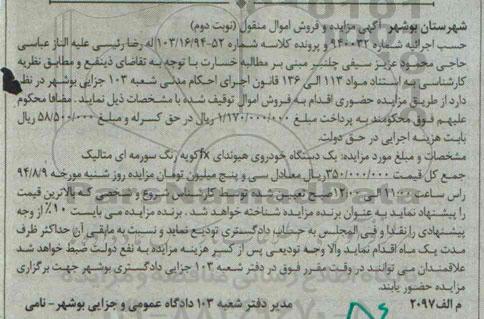 شهرستان بوشهر آگهی مزایده و فروش اموال منقول (نوبت دوم)
حسب اجرائیه شماره ۹۴۰۰۳۲ و پرونده کلاسه شماره ۵۲-۱۰۳/۱۶/۹۴ له رضا رئیسی علیه الناز عباسی
حاجی محمود عزیز سیفی چلنبر مبنی بر مطالبه خسارت با توجه به تقاضای ذینفع و مطابق نظریه
کارشناسی به استناد مواد ۱۱۳ الی ۱۳۶ قانون اجرای احکام مدنی شعبه ۱۰۳ جزایی بوشهر در نظر
دارد از طریق مزایده حضوری اقدام به فروش اموال توقیف شده با مشخصات ذیل نماید. مضافا محکوم
علیهم فوق محکومند به پرداخت مبلغ ۱/۱۷۰/۰۰۰/۰۰۰ ریال در حق کسرله و مبلغ ۵۸/۵۰۰/۰۰۰ ریال
بابت هزینه اجرایی در حق دولت.
مشخصات و مبلغ مورد مزایده: یک دستگاه خودروی هیوندای fx کوپه رنگ سورمه ای متالیک
جمع کل قیمت ۳۵۰/۰۰۰/۰۰۰ ریال معادل سی و پنج میلیون تومان مزایده روز شنبه مورخه ۹۴/۸/۹
راس ساعت ۱۱:۰۰ الی ۱۲:۰۰ صبح تعیین شده توسط کارشناس شروع و شخصی که بالاترین قیمت
را پیشنهاد نماید به عنوان برنده مزایده شناخته خواهد شد. برنده مزایده می بایست ۱۰٪ از وجه
پیشنهادی را نقدا و فی المجلس به حساب دادگستری تودیع نماید و نسبت به مابقی آن حداکثر ظرف
مدت یک ماه اقدام نماید والا وجه تودیعی پس از کسر هزینه مزایده به نفع دولت ضبط خواهد شد
علاقمندان می توانند در وقت مقرر فوق در دفتر شعبه ۱۰۳ جزایی دادگستری بوشهر جهت برگزاری
مزایده حضور یابند.
م الف ۲۰۹۷
مدیر دفتر شعبه ۱۰۳ دادگاه عمومی و جزایی بوشهر - نامی